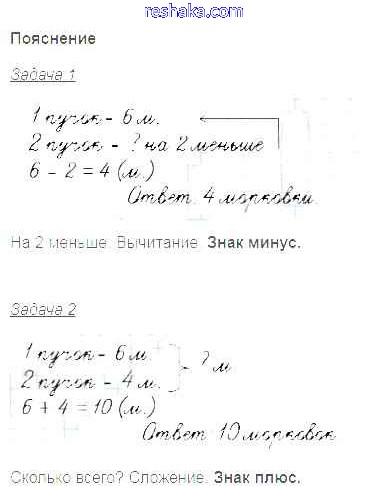 reshaka.com
Пояснение
Задача 1
1 пучок - 6 м.
2 пучок - ? на 2 меньше
6 - 2 = 4 (м.)
Ответ. 4 морковки.
На 2 меньше. Вычитание. Знак минус.
Задача 2
1 пучок - 6 м.
2 пучок - 4 м. - ? м.
6 + 4 = 10 (м.)
Ответ 10 морковок
Сколько всего? Сложение. Знак плюс.